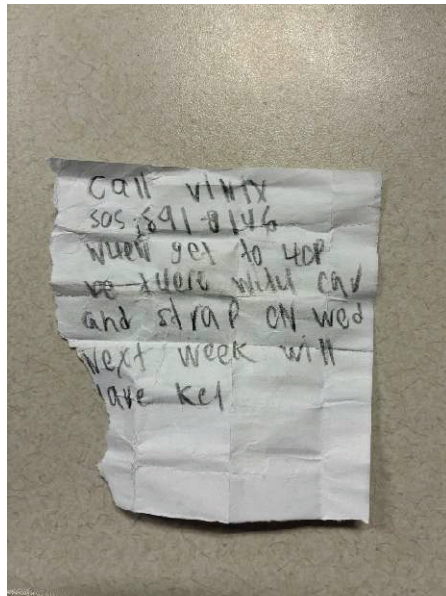 Call vinix
505,891-8146
when get to 4CP
be there with car
and strap on wed
next week will
have Key